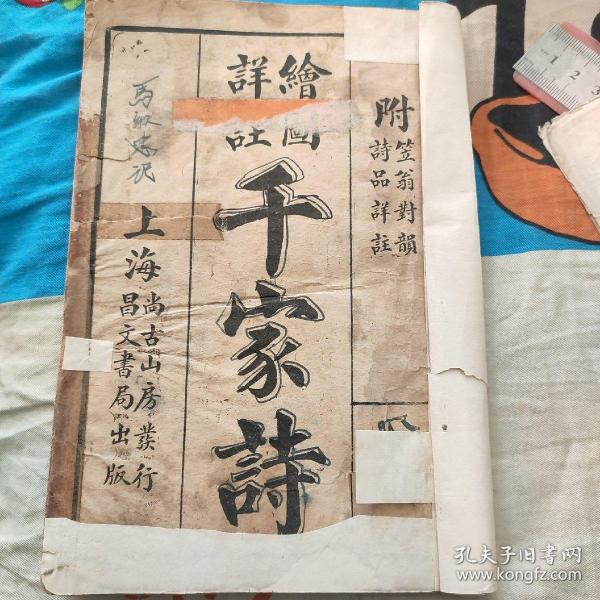 附
笠翁對韻
詩品詳註
繪圖
詳註
千家詩
上海
尚古山房發行
昌文書局出版
1 2 3
孔夫子旧书网
www.kongfz.com